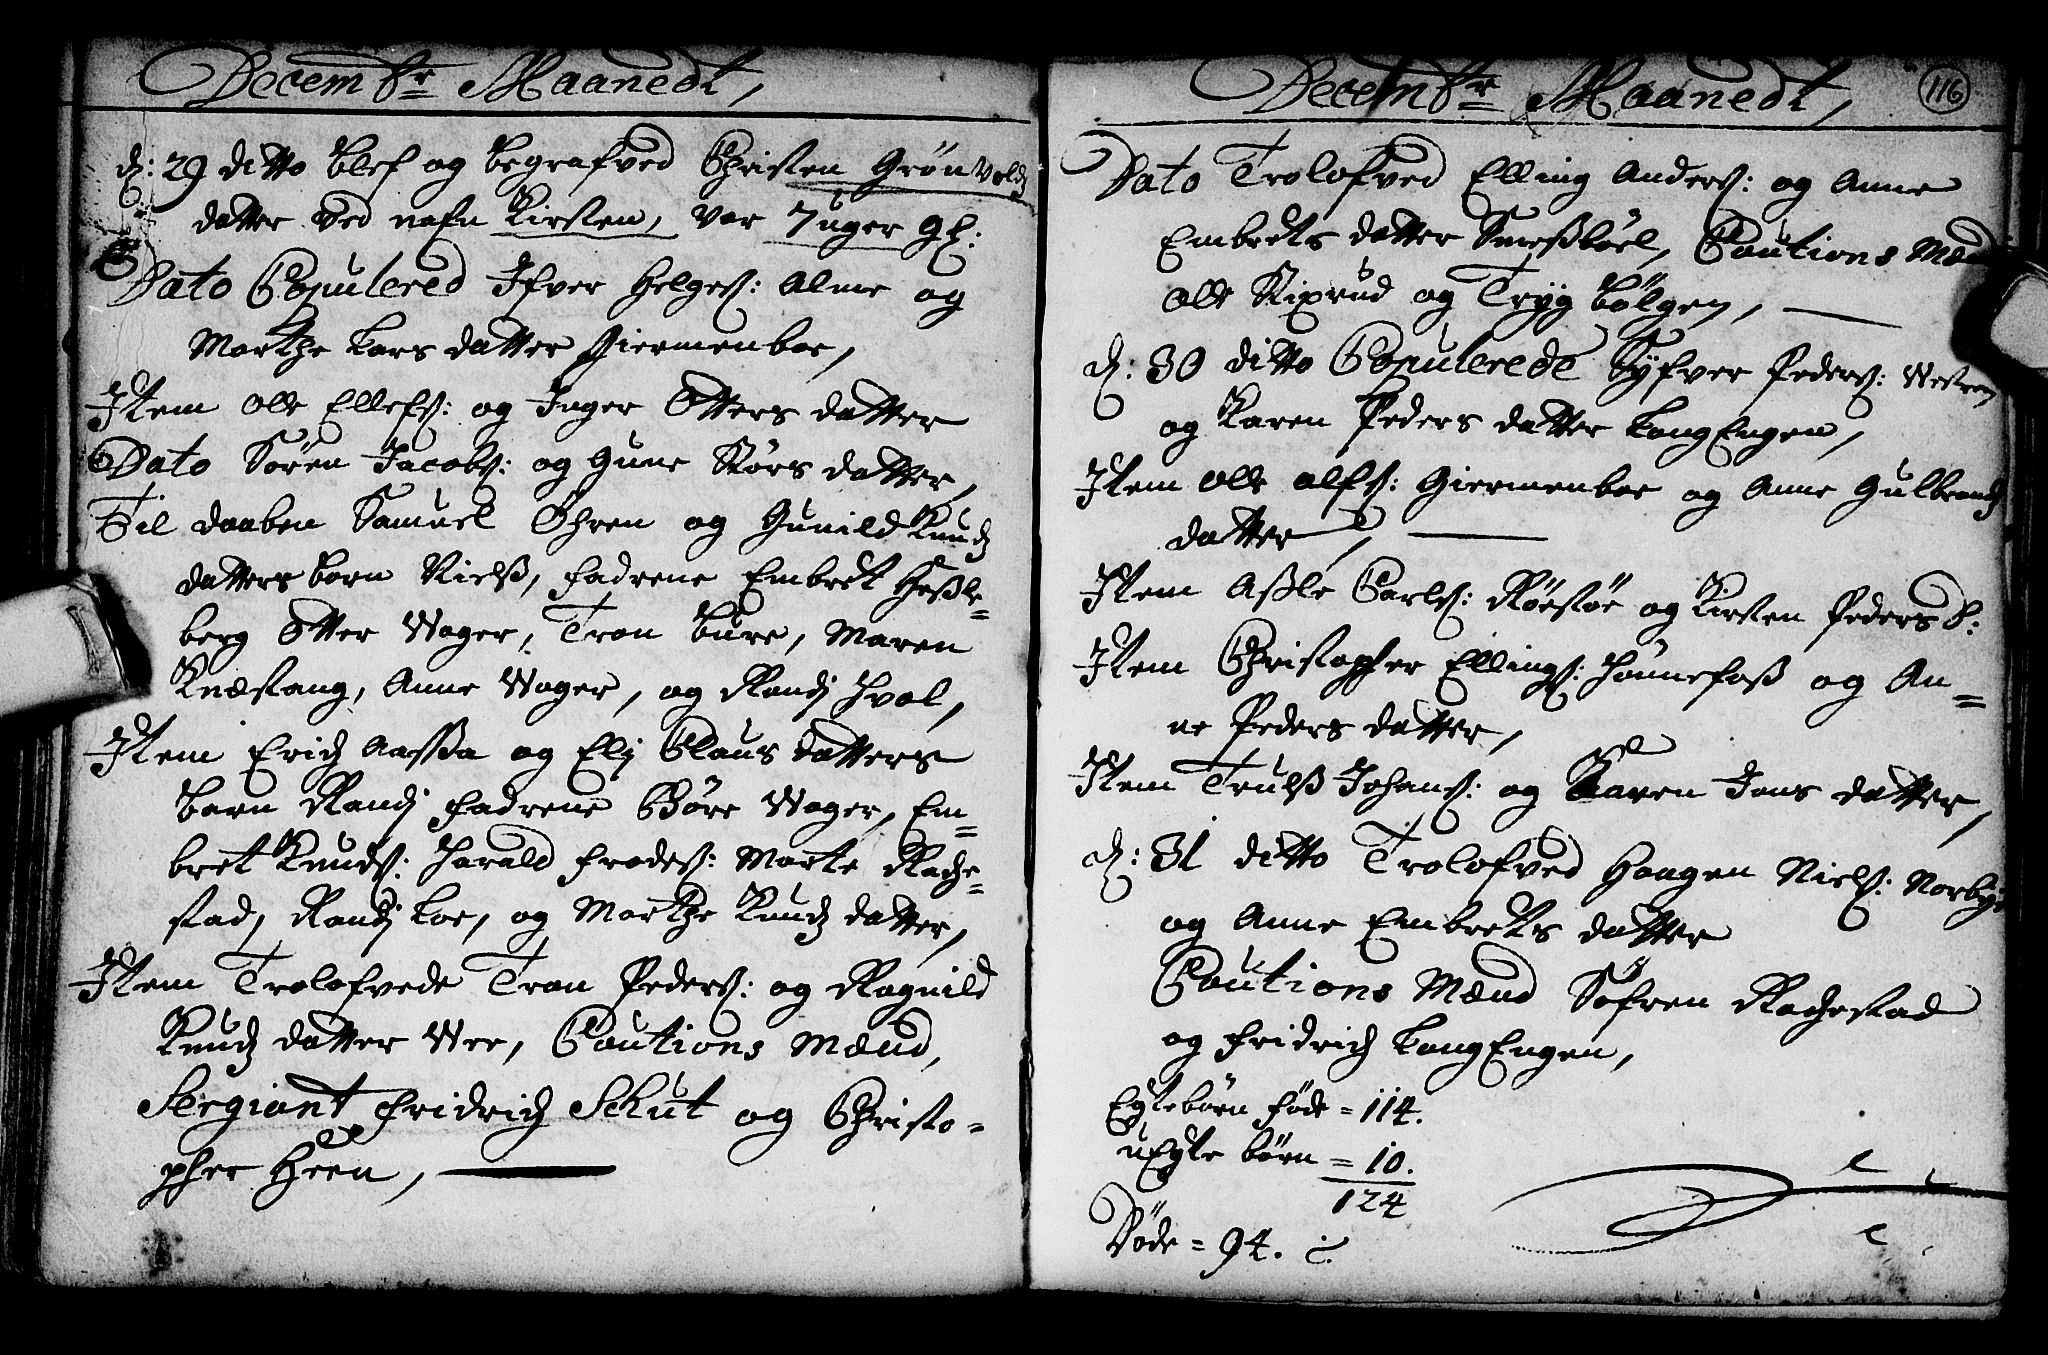 Decembr Maanedt,
d: 29 ditto blef og begrafved Christen Grønvolds
datter ved nafn Kirsten, var 7 uger gl:
Dato Copulered Ifver Helges: Alme og
Marthe Lars datter Giermenboe,
Item Olle Ellefs: og Inger Otters datter
Dato Søren Jacobs: og Gune Kørs datter,
Til daaben Samuel Öhren og Gunild Knudz
datters barn Nielß, fadrene Embret Heßle=
berg Otter Wager, Tron Bure, Maren
Knæstang, Anne Wager, og Randj Hval,
Item Erich Aaßßa og Elj Claus datters
barn Randj fadrene Børe Wager, Em=
bret Knuds: Harald Frodes: Marte Rache=
stad, Randj Loe, og Marthe Knudz datter,
Item Trolofvede Tron Peders: og Ragnild
Knudz datter Wee, Cautions Mænd,
Sergiant Fridrich Schut og Christo=
pher Heen,
Decembr Maanedt,
116
Dato Trolofved Elling Anders: og Anne
Embrets datter Smeßbøel, Cautions Mænd
Olle Kixrud og Tryg Bølgen,
d: 30 ditto Copulerede Syfver Peders: Westren
og Karen Peders datter LangEngen,
Item Olle Alfs: Giermenboe og Anne Gulbrands
datter,
Item Aßle Carls: Røestøe og Kirsten Peders D:
Item Christopher Ellings: Hønnefoß og An=
ne Peders datter,
Item Trulß Johans: og Karen Jens datter,
d: 31 ditto Trolofved Haagen Niels: Norbye
og Anne Embrets datter
Cautions Mænd Søfren Rachestad
og Fridrich LangEngen,
Egtebørn føde = 114.
uEgte børn = 10.
124
Døde = 94.